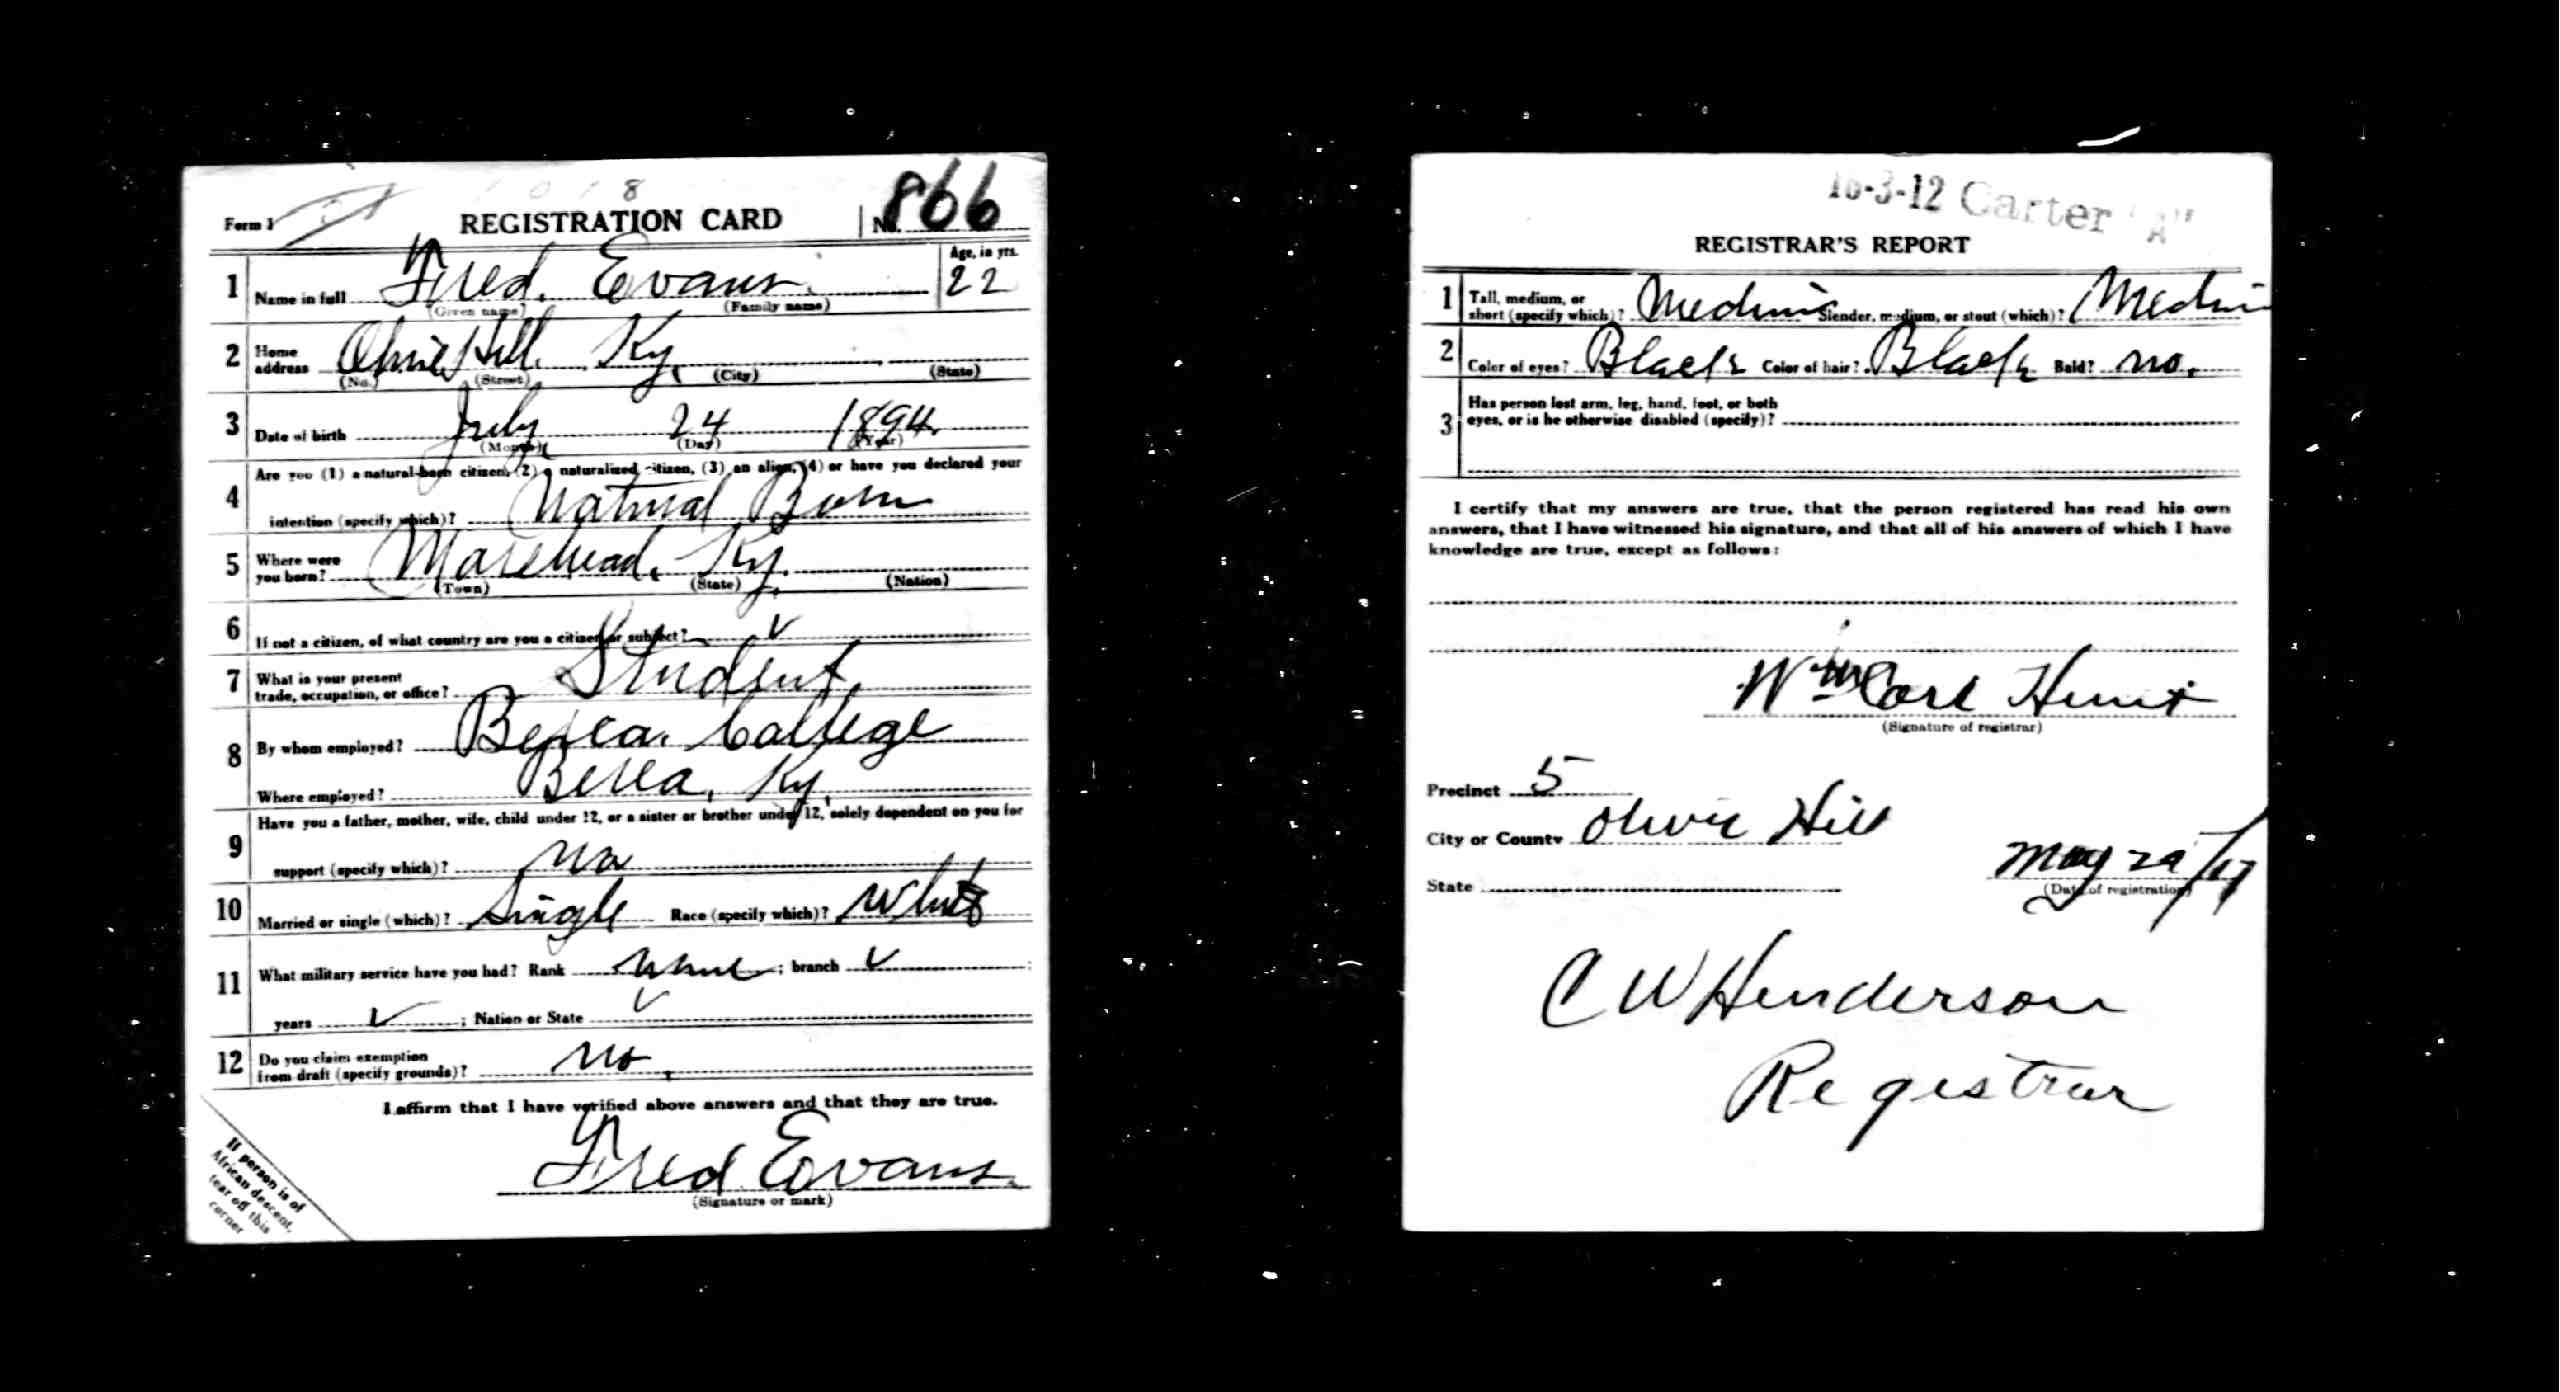 Form 1 REGISTRATION CARD No. 866
1 Name in full Fred. Evans. Age, in yrs. 22
(Given name) (Family name)
2 Home address Olive Hill. Ky.
(No.) (Street) (City) (State)
3 Date of birth July 24 1894.
(Month) (Day) (Year)
4 Are you (1) a natural-born citizen, (2) a naturalized citizen, (3) an alien, (4) or have you declared your
intention (specify which)? Natural Born
5 Where were you born? Morehead. Ky.
(Town) (State) (Nation)
6 If not a citizen, of what country are you a citizen or subject? ✓
7 What is your present trade, occupation, or office? Student.
8 By whom employed? Berea. College
Where employed? Berea, Ky.
9 Have you a father, mother, wife, child under 12, or a sister or brother under 12, solely dependent on you for
support (specify which)? No
10 Married or single (which)? Single Race (specify which)? White
11 What military service have you had? Rank None ; branch ✓ ;
years ✓ ; Nation or State ✓
12 Do you claim exemption from draft (specify grounds)? No.
I affirm that I have verified above answers and that they are true.
Fred Evans.
(Signature or mark)
If person is of
African descent,
tear off this
corner
16-3-12 Carter "A"
REGISTRAR'S REPORT
1 Tall, medium, or short (specify which)? Medium Slender, medium, or stout (which)? Medium
2 Color of eyes? Black Color of hair? Black Bald? No.
3 Has person lost arm, leg, hand, foot, or both
eyes, or is he otherwise disabled (specify)?
I certify that my answers are true, that the person registered has read his own
answers, that I have witnessed his signature, and that all of his answers of which I have
knowledge are true, except as follows:
Wm Carl Hunt
(Signature of registrar)
Precinct 5
City or County Olive Hill
State
May 29/17
(Date of registration)
C W Henderson
Registrar